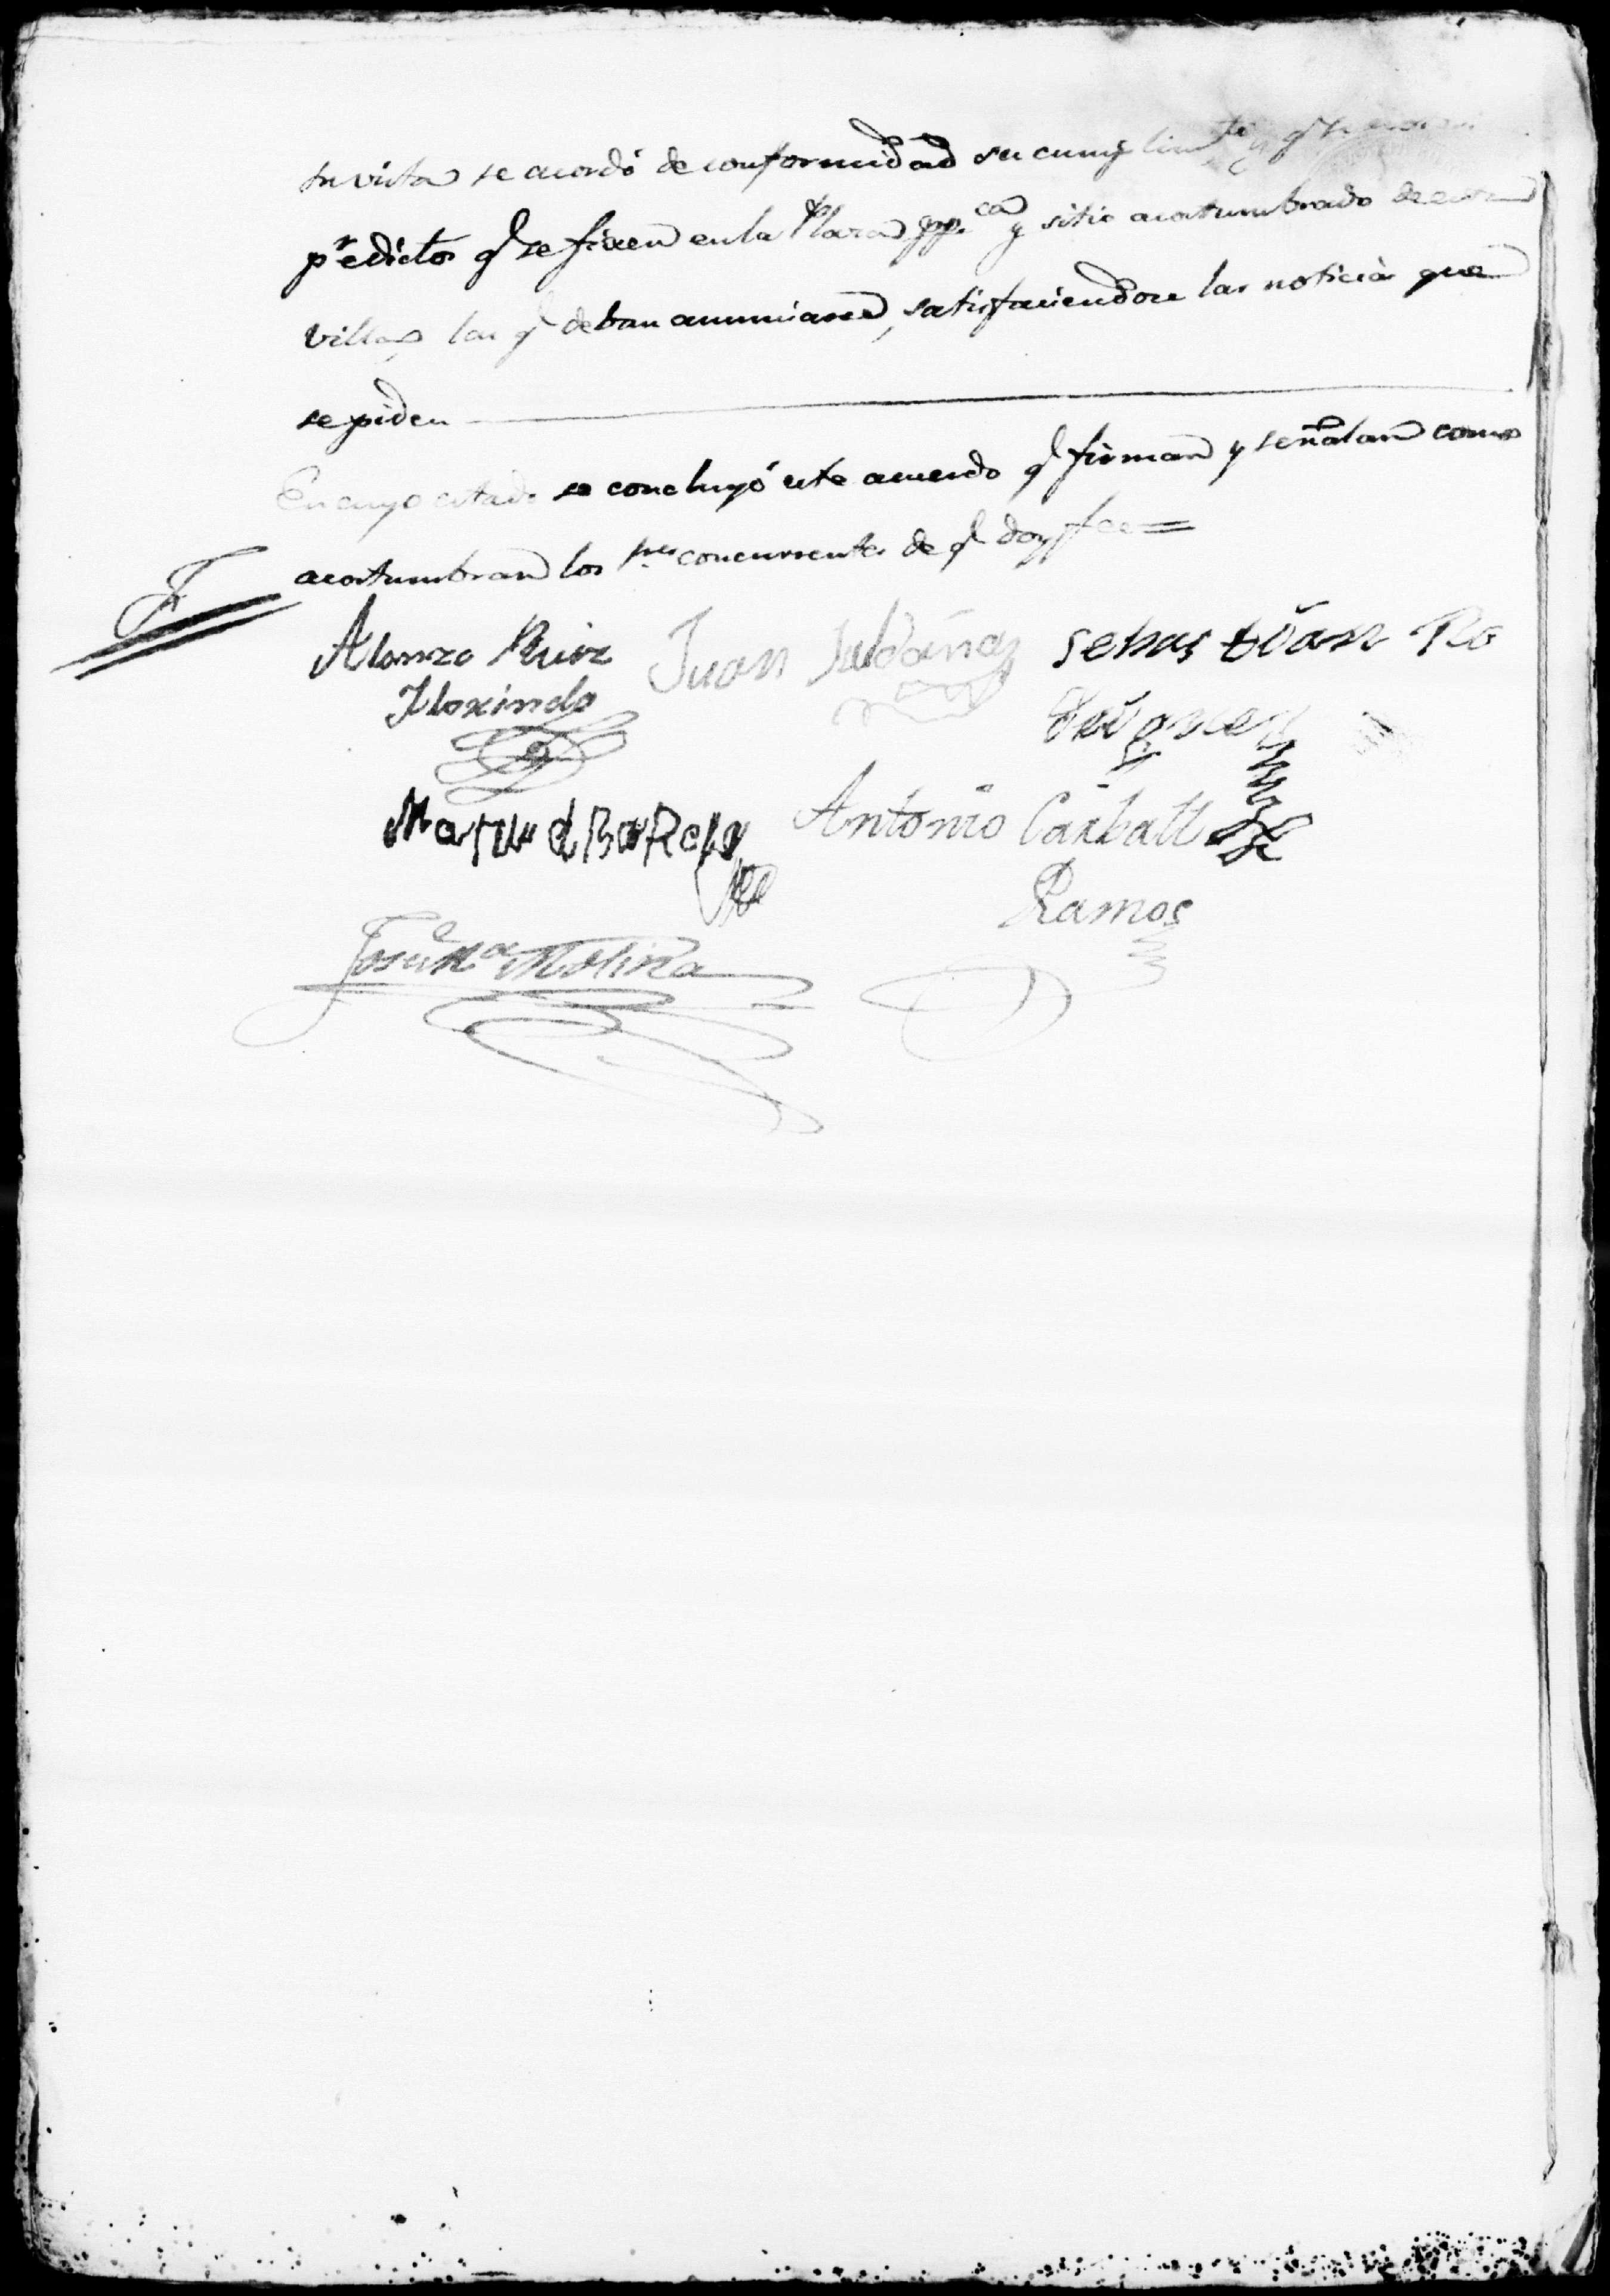 su vista se acordó de conformidad su cumplimto y q se
pr edictos q se fixen en la Plaza ppca y sitio acostumbrado de esta
villa, las q deban anunciarse, satisfaciendose las noticias que
se piden
En cuyo estado se concluyó este acuerdo q firman y señalan como
acostumbran los sres concurrentes de q doy fee =
Alonzo Ruiz Juan Saldaña Sebastian Ro
Florindo driguez
Manuel Barela Antonio Carballo
Ramos
Jose Ma Molina